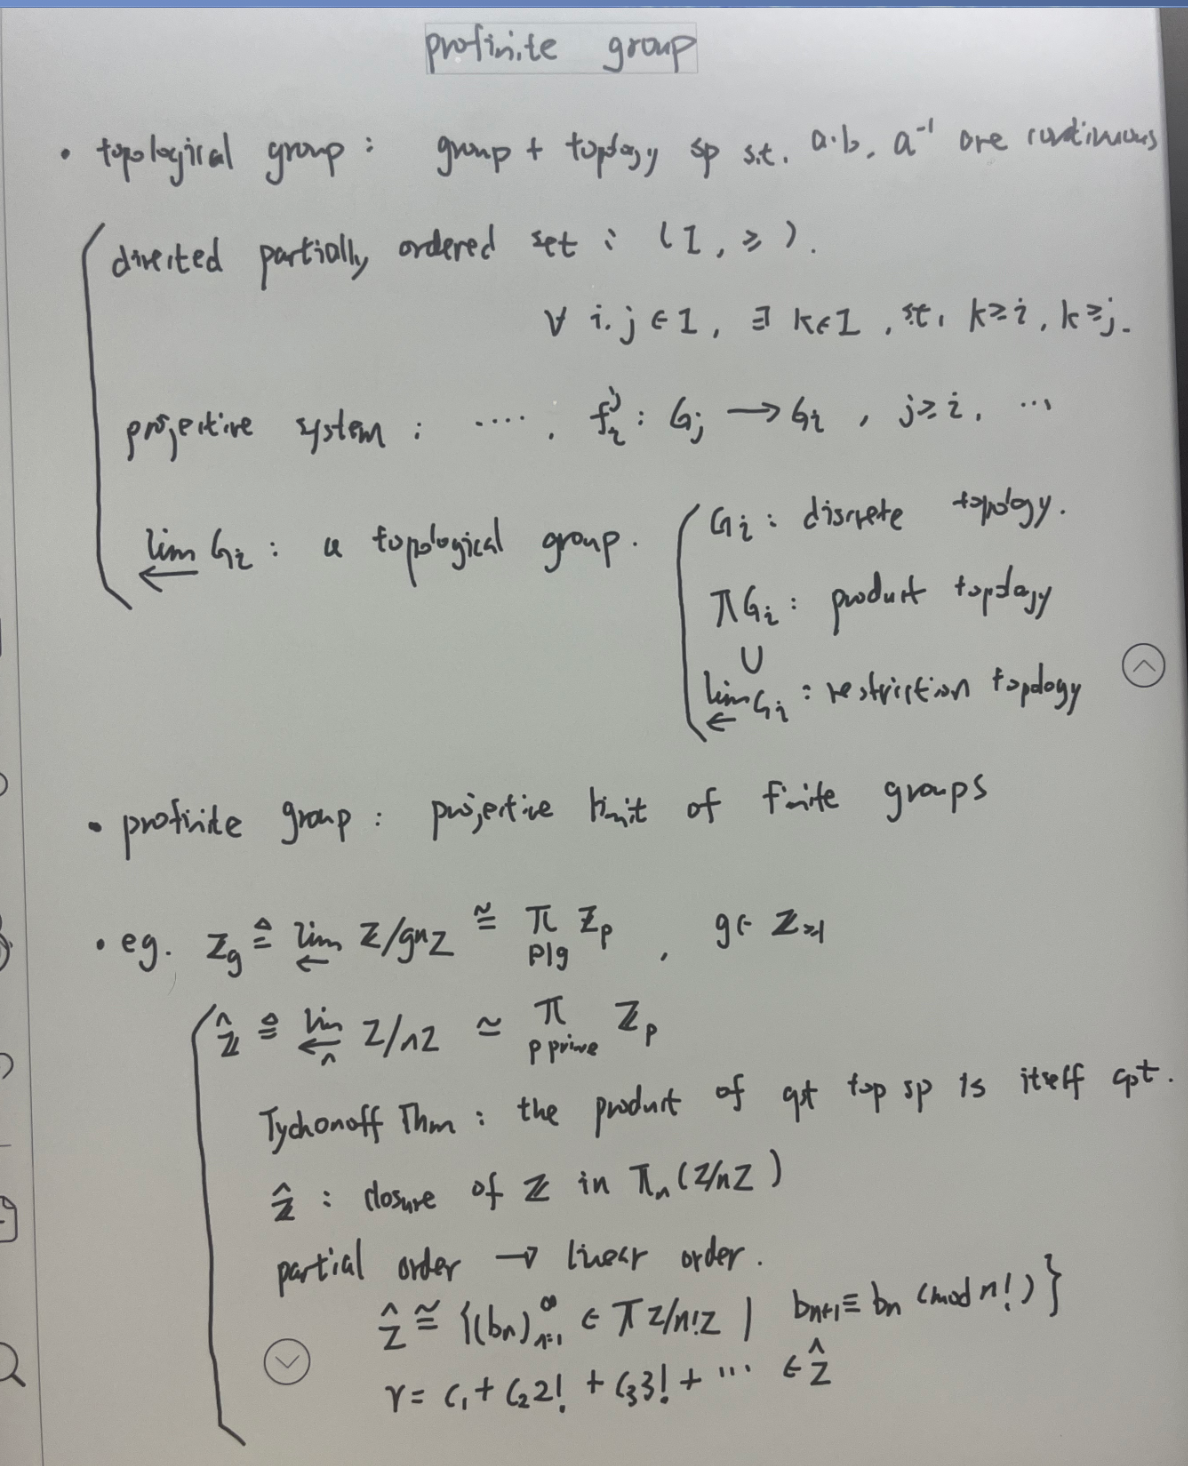 profinite group
• topological group : group + topology sp s.t. a·b, a⁻¹ are continuous
directed partially ordered set : (I, ≥).
∀ i.j ∈ I, ∃ k∈I, s.t. k≥i, k≥j.
projective system : ...., fᵢʲ : Gⱼ → Gᵢ, j≥i, ...
lim← Gᵢ : a topological group.
Gᵢ : discrete topology.
πGᵢ : product topology
∪
lim← Gᵢ : restriction topology
• profinite group : projective limit of finite groups
• eg. Z_g ≜ lim← Z/gⁿZ ≅ π_{p|g} Z_p, g∈ Z≥1
Ẑ ≜ lim←_n Z/nZ ≃ π_{p prime} Z_p
Tychonoff Thm : the product of cpt top sp is itself cpt.
Ẑ : closure of Z in πₙ(Z/nZ)
partial order → linear order.
Ẑ ≅ {(bₙ)_{n=1}^∞ ∈ π Z/n!Z | bₙ₊₁ ≡ bₙ (mod n!)}
γ = c₁ + c₂2! + c₃3! + ... ∈ Ẑ